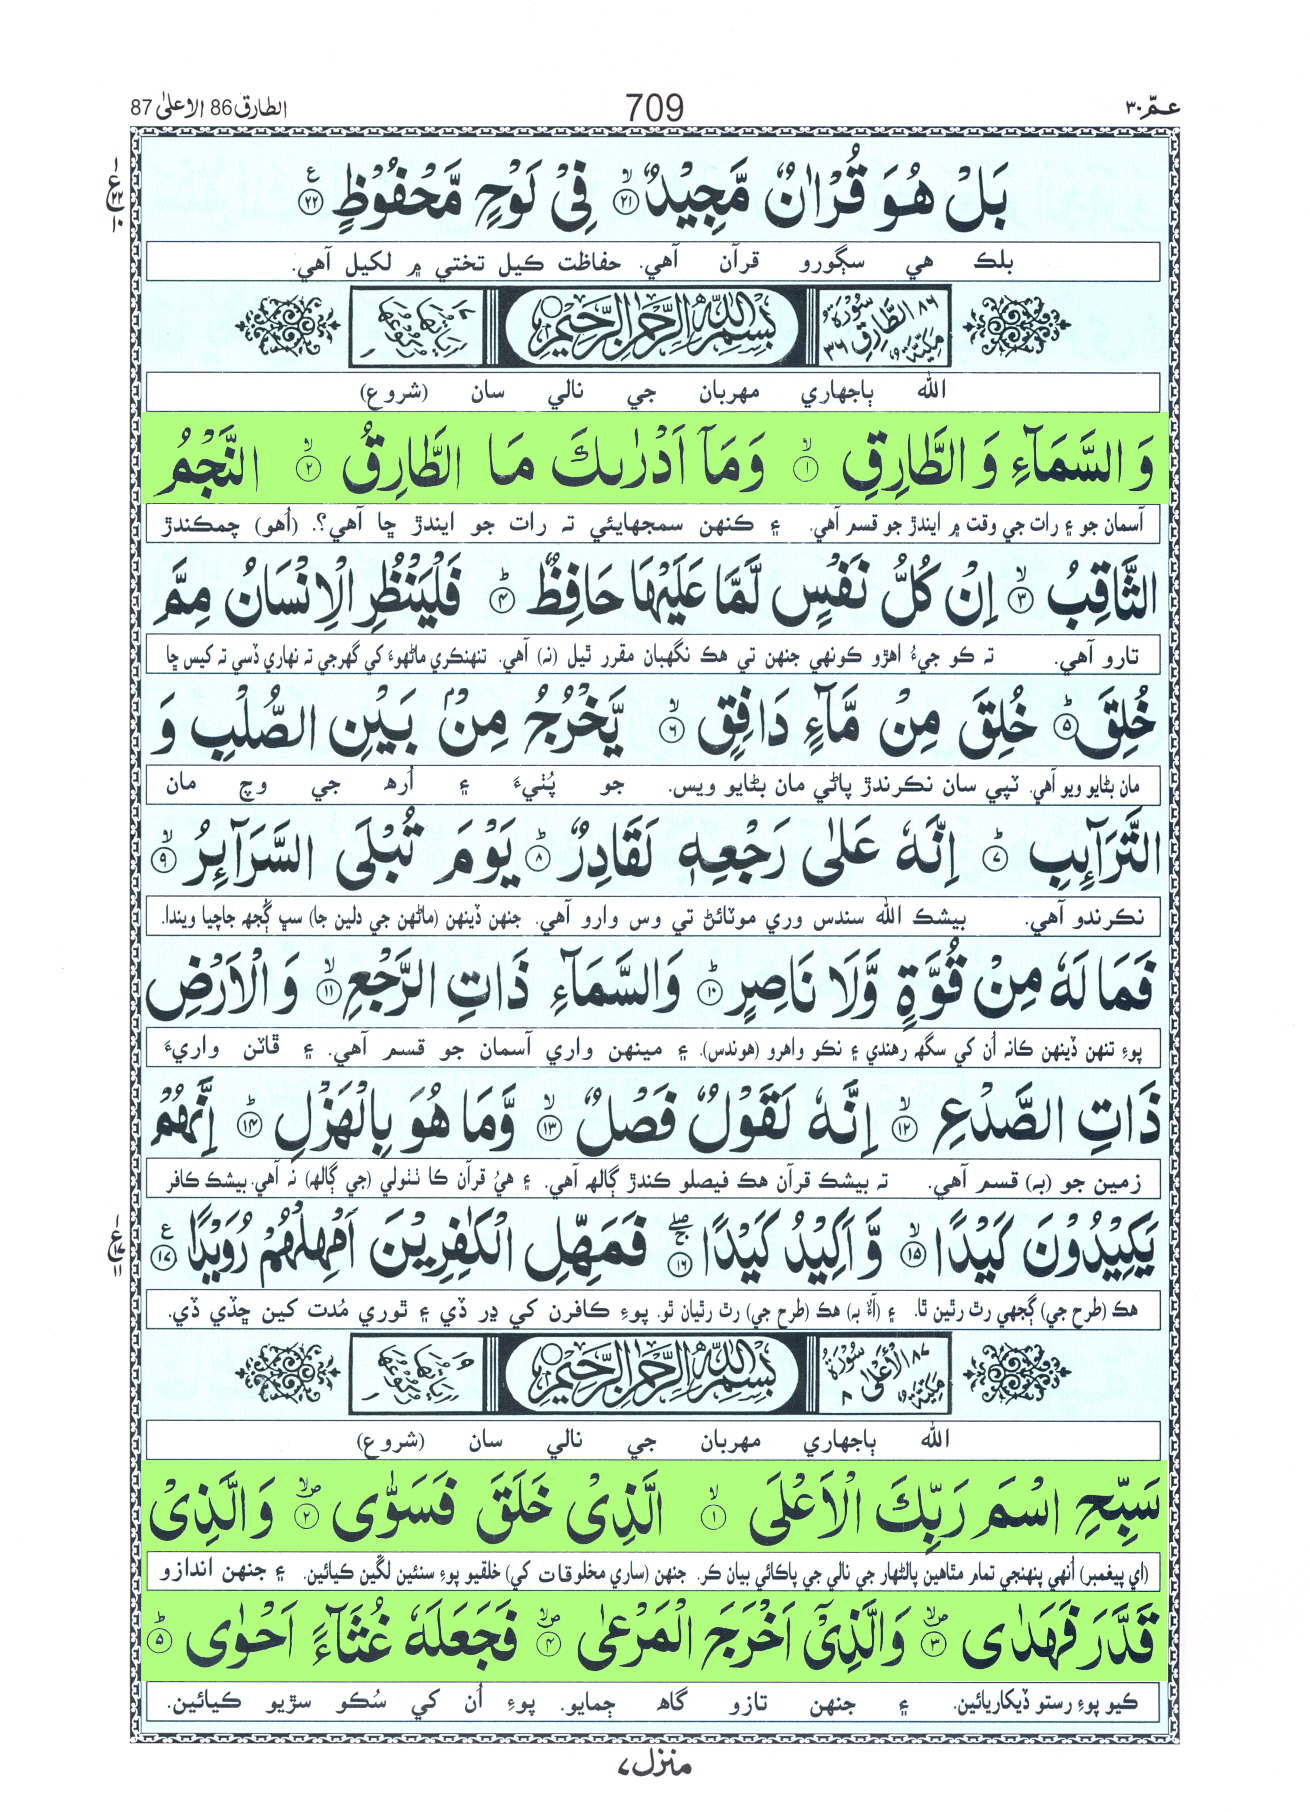 الطارق 86 الاعلىٰ 87
709
عـمّ ٣٠
بَلْ هُوَ قُرْاٰنٌ مَّجِيْدٌ ۙ﴿٢١﴾ فِيْ لَوْحٍ مَّحْفُوْظٍ ﴿٢٢﴾ ع
بلڪ هي سڳورو قرآن آهي. حفاظت ڪيل تختي ۾ لکيل آهي.
٨٦ سُوْرَةُ الطَّارِقِ مَكِّيَّةٌ ٣٦
بِسْمِ اللّٰهِ الرَّحْمٰنِ الرَّحِيْمِ
الله ٻاجهاري مهربان جي نالي سان (شروع)
وَالسَّمَآءِ وَالطَّارِقِ ۙ﴿١﴾ وَمَآ اَدْرٰىكَ مَا الطَّارِقُ ۙ﴿٢﴾ النَّجْمُ
آسمان جو ۽ رات جي وقت ۾ ايندڙ جو قسم آهي. ۽ ڪنهن سمجهايئي تہ رات جو ايندڙ ڇا آهي؟. (اُهو) چمڪندڙ
الثَّاقِبُ ۙ﴿٣﴾ اِنْ كُلُّ نَفْسٍ لَّمَّا عَلَيْهَا حَافِظٌ ؕ﴿٤﴾ فَلْيَنْظُرِ الْاِنْسَانُ مِمَّ
تارو آهي. تہ ڪو جيءُ اهڙو ڪونهي جنهن تي هڪ نگهبان مقرر ٿيل (نہ) آهي. تنهنڪري ماڻهوءَ کي گهرجي تہ نهاري ڏسي تہ ڪيس ڇا
خُلِقَ ؕ﴿٥﴾ خُلِقَ مِنْ مَّآءٍ دَافِقٍ ۙ﴿٦﴾ يَّخْرُجُ مِنْۢ بَيْنِ الصُّلْبِ وَ
مان بڻايو ويو آهي. ٽپي سان نڪرندڙ پاڻي مان بڻايو ويس. جو پُٺيءَ ۽ اُرهہ جي وچ مان
التَّرَآئِبِ ؕ﴿٧﴾ اِنَّهٗ عَلٰى رَجْعِهٖ لَقَادِرٌ ؕ﴿٨﴾ يَوْمَ تُبْلَى السَّرَآئِرُ ۙ﴿٩﴾
نڪرندو آهي. بيشڪ الله سندس وري موٽائڻ تي وس وارو آهي. جنهن ڏينهن (ماڻهن جي دلين جا) سڀ ڳُجهہ جاچيا ويندا.
فَمَا لَهٗ مِنْ قُوَّةٍ وَّلَا نَاصِرٍ ؕ﴿١٠﴾ وَالسَّمَآءِ ذَاتِ الرَّجْعِ ۙ﴿١١﴾ وَالْاَرْضِ
پوءِ تنهن ڏينهن ڪانہ اُن کي سگهہ رهندي ۽ نڪو واهرو (هوندس). ۽ مينهن واري آسمان جو قسم آهي. ۽ ڦاٽن واريءَ
ذَاتِ الصَّدْعِ ۙ﴿١٢﴾ اِنَّهٗ لَقَوْلٌ فَصْلٌ ۙ﴿١٣﴾ وَّمَا هُوَ بِالْهَزْلِ ؕ﴿١٤﴾ اِنَّهُمْ
زمين جو (بہ) قسم آهي. تہ بيشڪ قرآن هڪ فيصلو ڪندڙ ڳالهہ آهي. ۽ هيُ قرآن ڪا ٺٺولي (جي ڳالهہ) نہ آهي. بيشڪ ڪافر
يَكِيْدُوْنَ كَيْدًا ۙ﴿١٥﴾ وَّاَكِيْدُ كَيْدًا ﴿١٦﴾ فَمَهِّلِ الْكٰفِرِيْنَ اَمْهِلْهُمْ رُوَيْدًا ﴿١٧﴾ ع
هڪ (طرح جي) ڳجهي رٿ رٿين ٿا. ۽ (آءٌ بہ) هڪ (طرح جي) رٿ رٿيان ٿو. پوءِ ڪافرن کي ڍر ڏي ۽ ٿوري مُدت کين ڇڏي ڏي.
٨٧ سُوْرَةُ الْاَعْلٰى مَكِّيَّةٌ ٨
بِسْمِ اللّٰهِ الرَّحْمٰنِ الرَّحِيْمِ
الله ٻاجهاري مهربان جي نالي سان (شروع)
سَبِّحِ اسْمَ رَبِّكَ الْاَعْلَى ۙ﴿١﴾ الَّذِيْ خَلَقَ فَسَوّٰى ﴿٢﴾ وَالَّذِيْ
(اي پيغمبر) اُنهي پنهنجي تمام مٿاهين پالڻهار جي نالي جي پاڪائي بيان ڪر. جنهن (ساري مخلوقات کي) خلقيو پوءِ سنئين لڱين ڪيائين. ۽ جنهن اندازو
قَدَّرَ فَهَدٰى ﴿٣﴾ وَالَّذِيْٓ اَخْرَجَ الْمَرْعٰى ﴿٤﴾ فَجَعَلَهٗ غُثَآءً اَحْوٰى ؕ﴿٥﴾
ڪيو پوءِ رستو ڏيکاريائين. ۽ جنهن تازو گاهہ ڄمايو. پوءِ اُن کي سُڪو سڙيو ڪيائين.
منزل ٧